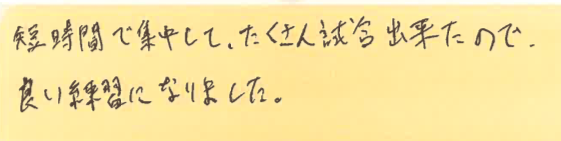 短時間で集中して、たくさん試合出来たので、
良い練習になりました。